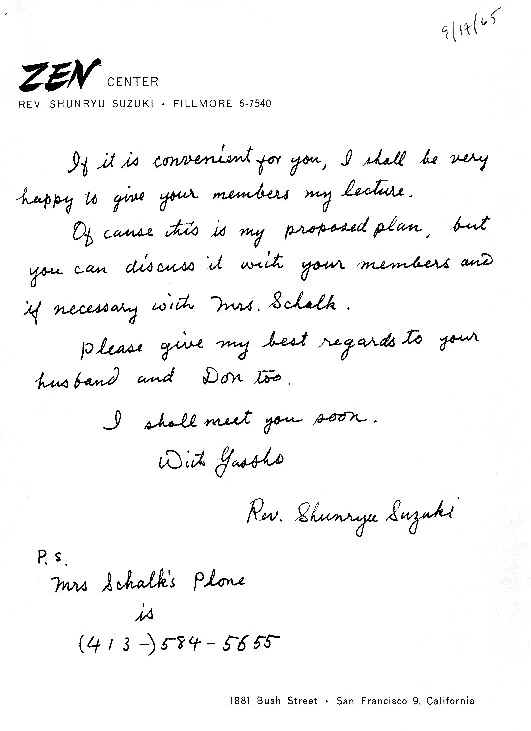 9/17/65
ZEN CENTER
REV SHUNRYU SUZUKI • FILLMORE 6-7540
If it is convenient for you, I shall be very
happy to give your members my lecture.
Of cause this is my proposed plan, but
you can discuss it with your members and
if necessary with Mrs. Schalk.
please give my best regards to your
husband and Don too.
I shall meet you soon.
With Gassho
Rev. Shunryu Suzuki
P.S.
Mrs Schalk's Phone
is
(413-)584-5655
1881 Bush Street • San Francisco 9, California